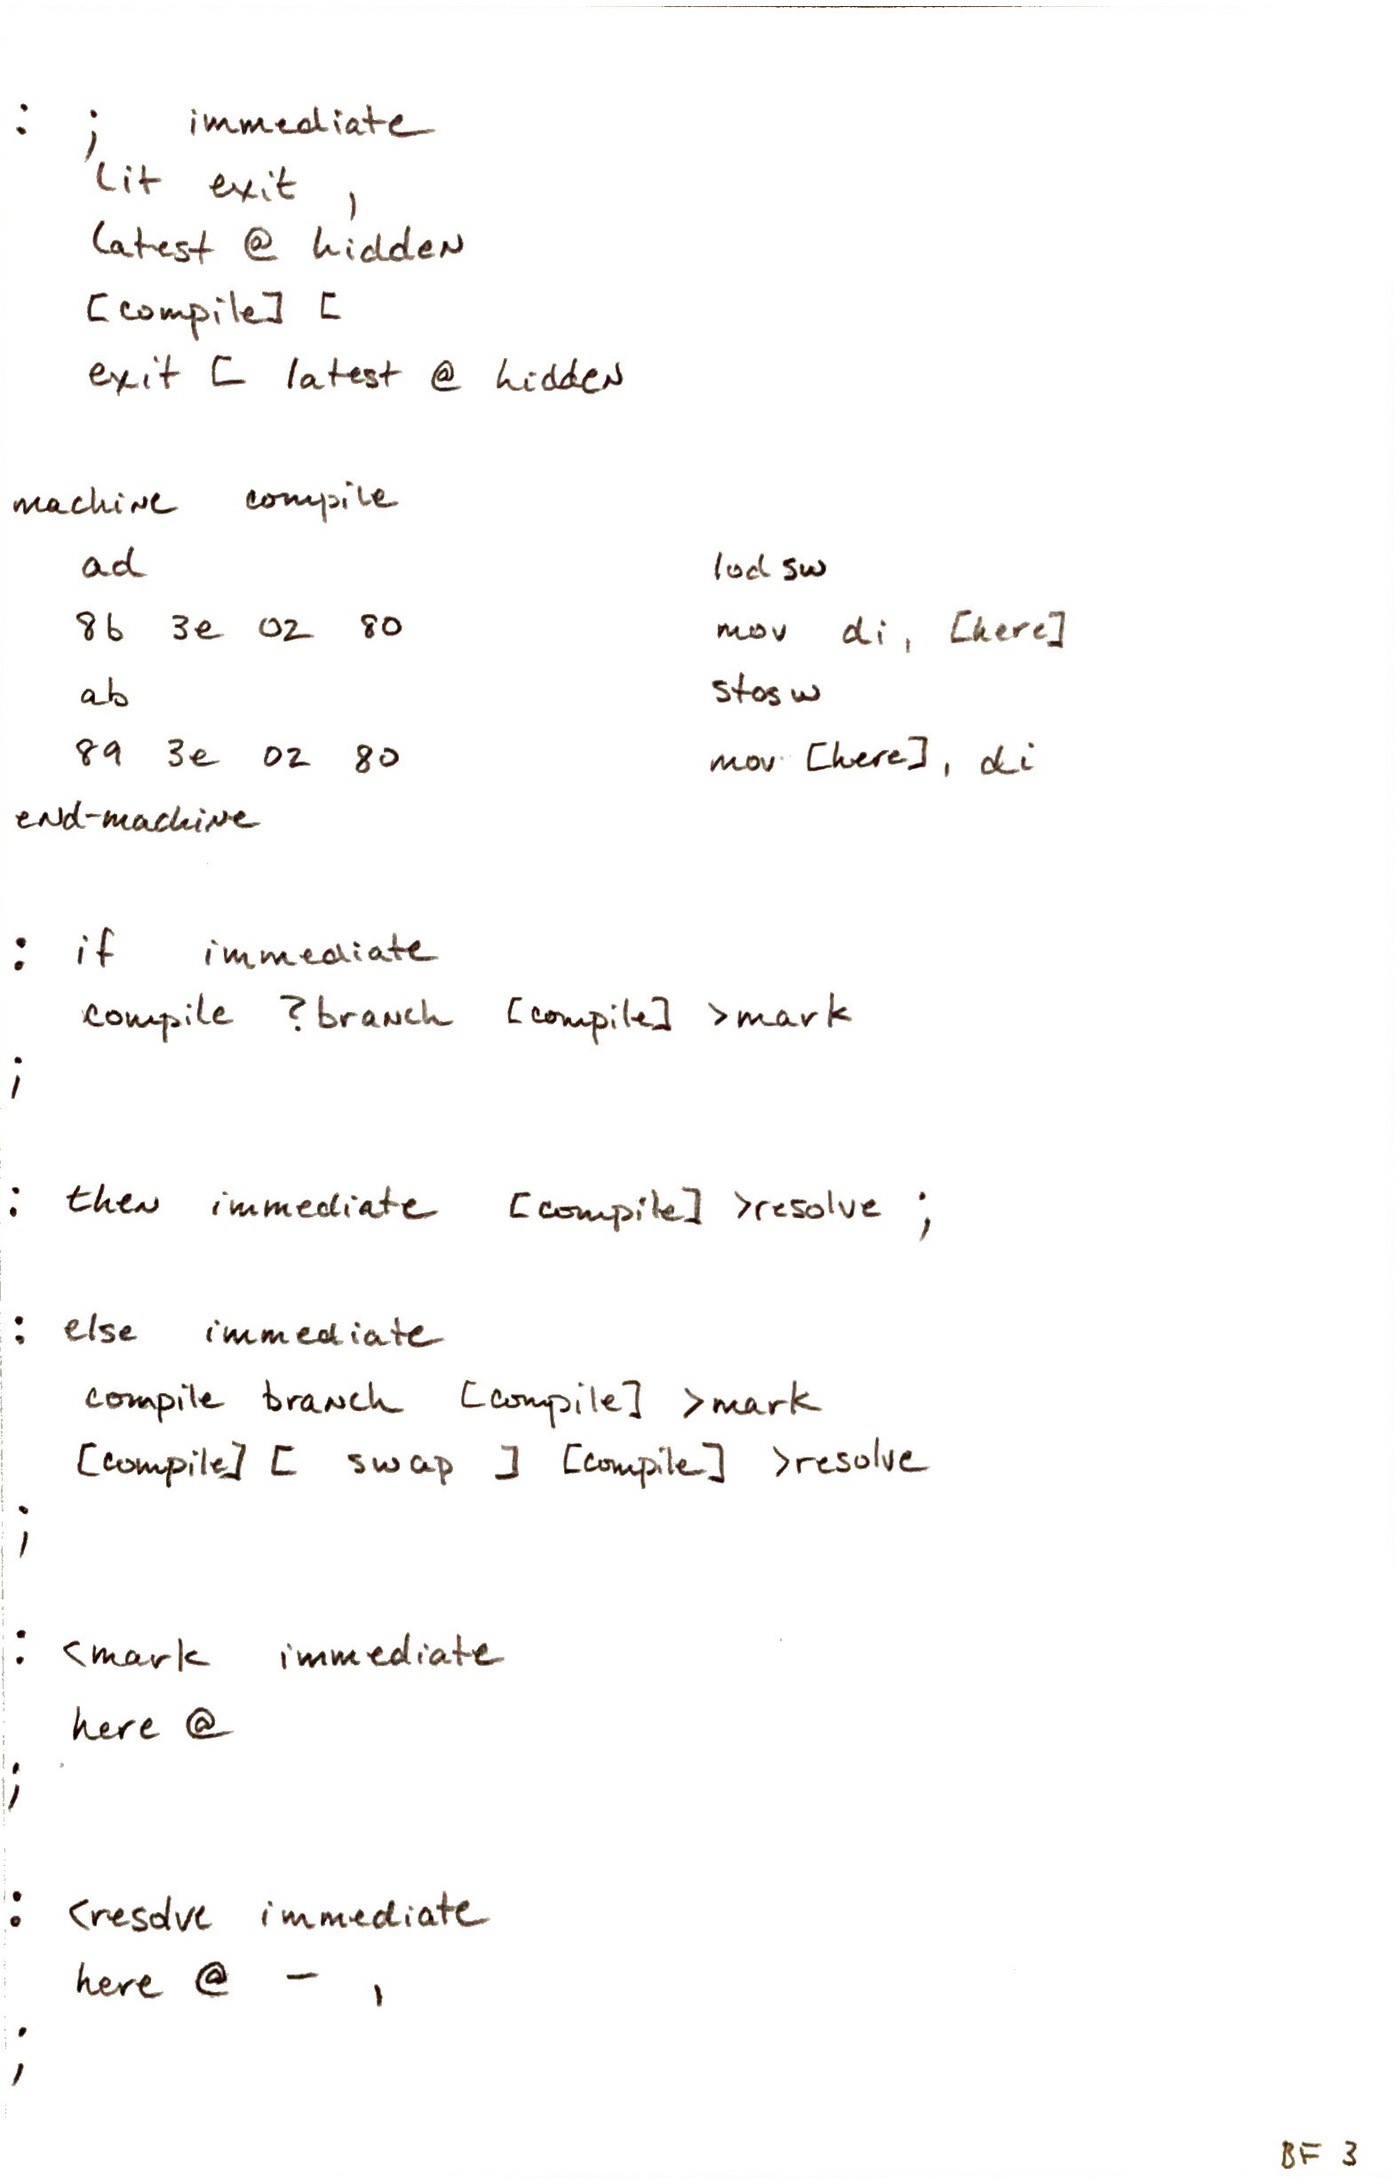 : ; immediate
lit exit ,
latest @ hidden
[compile] [
exit [ latest @ hidden
machine compile
ad lodsw
8b 3e 02 80 mov di, [here]
ab stosw
89 3e 02 80 mov [here], di
end-machine
: if immediate
compile ?branch [compile] >mark
;
: then immediate [compile] >resolve ;
: else immediate
compile branch [compile] >mark
[compile] [ swap ] [compile] >resolve
;
: <mark immediate
here @
;
: <resolve immediate
here @ - ,
;
BF 3